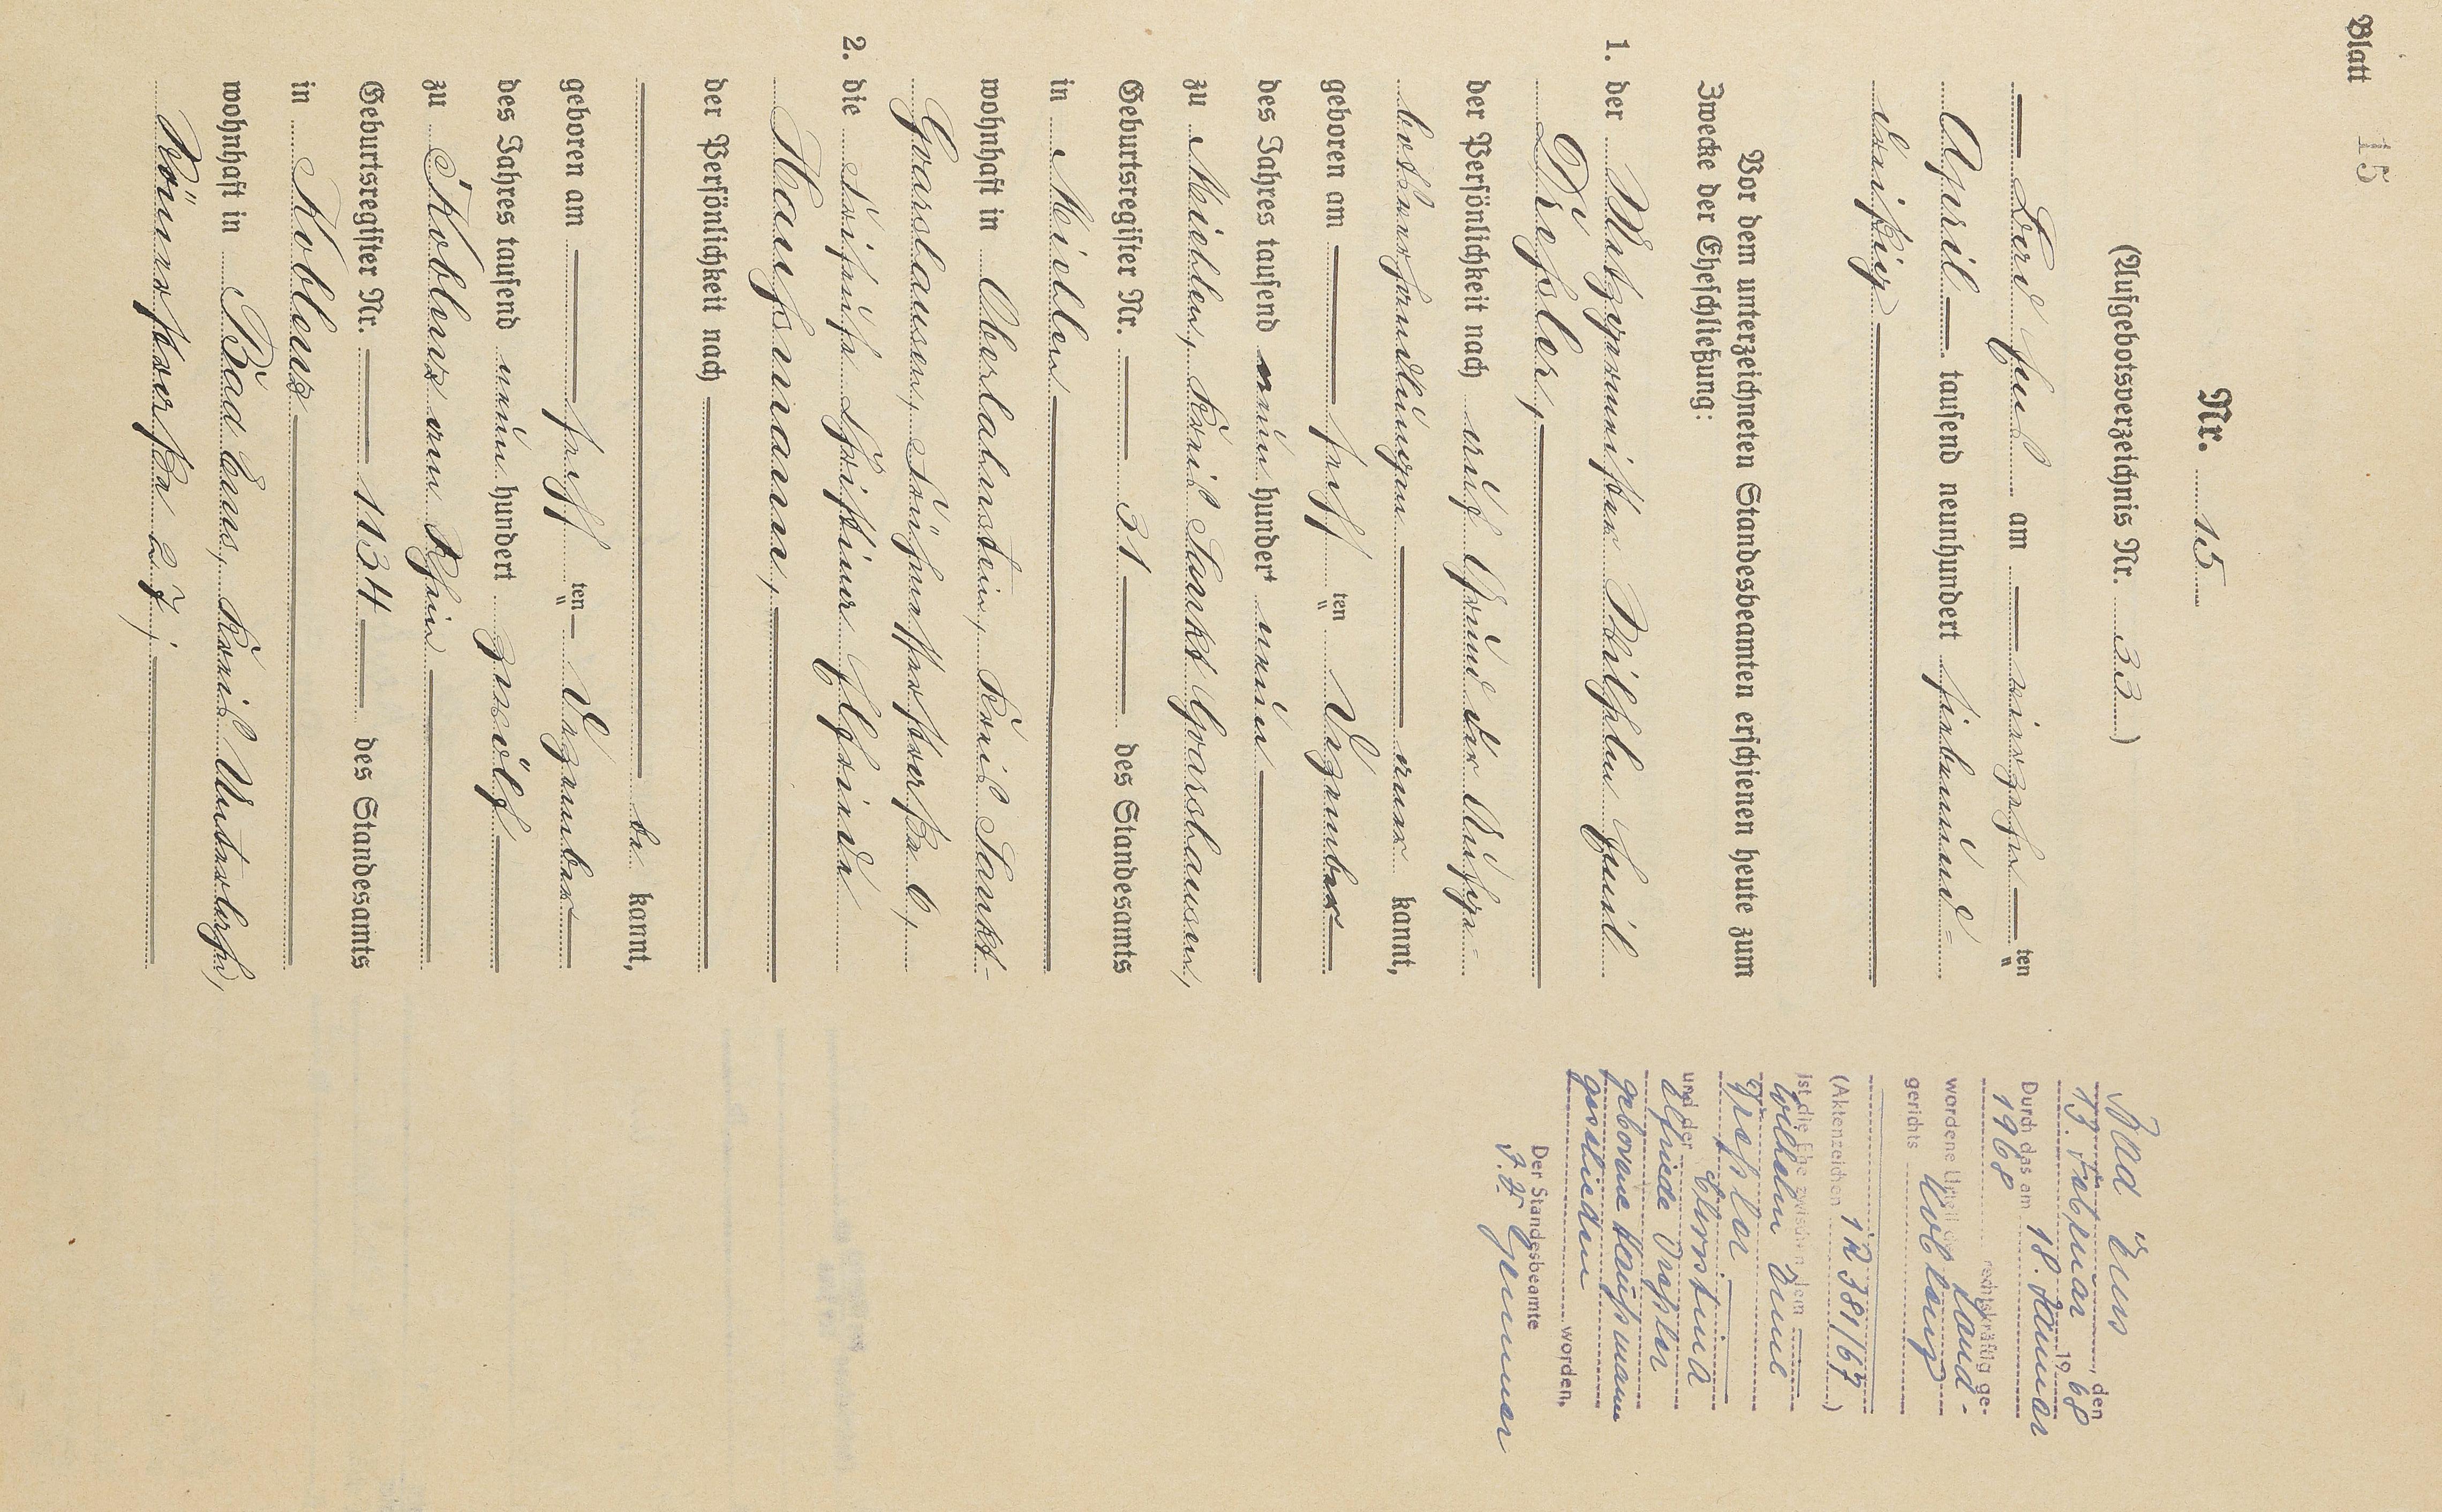 Blatt 15
Nr. 15
(Aufgebotsverzeichnis Nr. 33)
Bad Ems am vierzehn ten
April tausend neunhundert siebenund-
dreißig
Vor dem unterzeichneten Standesbeamten erschienen heute zum
Zwecke der Eheschließung:
1. der Metzgermeister Wilhelm Emil
Dreßler,
der Persönlichkeit nach auf Grund der Aufge-
botsverhandlungen aner kannt,
geboren am sech ten Dezember
des Jahres tausend neun hundert neun
zu Miehlen, Kreis Sankt Goarshausen,
Geburtsregister Nr. 31 des Standesamts
in Miehlen
wohnhaft in Oberlahnstein, Kreis Sankt-
Goarshausen, 6,
2. die Christine Elfriede
Haußmann,
der Persönlichkeit nach
be kannt,
geboren am sech ten Dezember
des Jahres tausend neun hundert zwölf
zu Koblenz am Rhein
Geburtsregister Nr. 1134 des Standesamts
in Koblenz
wohnhaft in Bad Ems, Kreis Unterlahn,
Römerstraße 27,
Bad Ems, den
13. Februar 1968
Durch das am 18. Januar
1968 rechtskräftig ge-
wordene Urteil des Land-
gerichts Koblenz
(Aktenzeichen 1 R 381/67)
ist die Ehe zwischen dem
Wilhelm Emil
Dreßler
und der Christina
Elfriede Dreßler
geborene Haußmann
geschieden worden.
Der Standesbeamte
I.V.